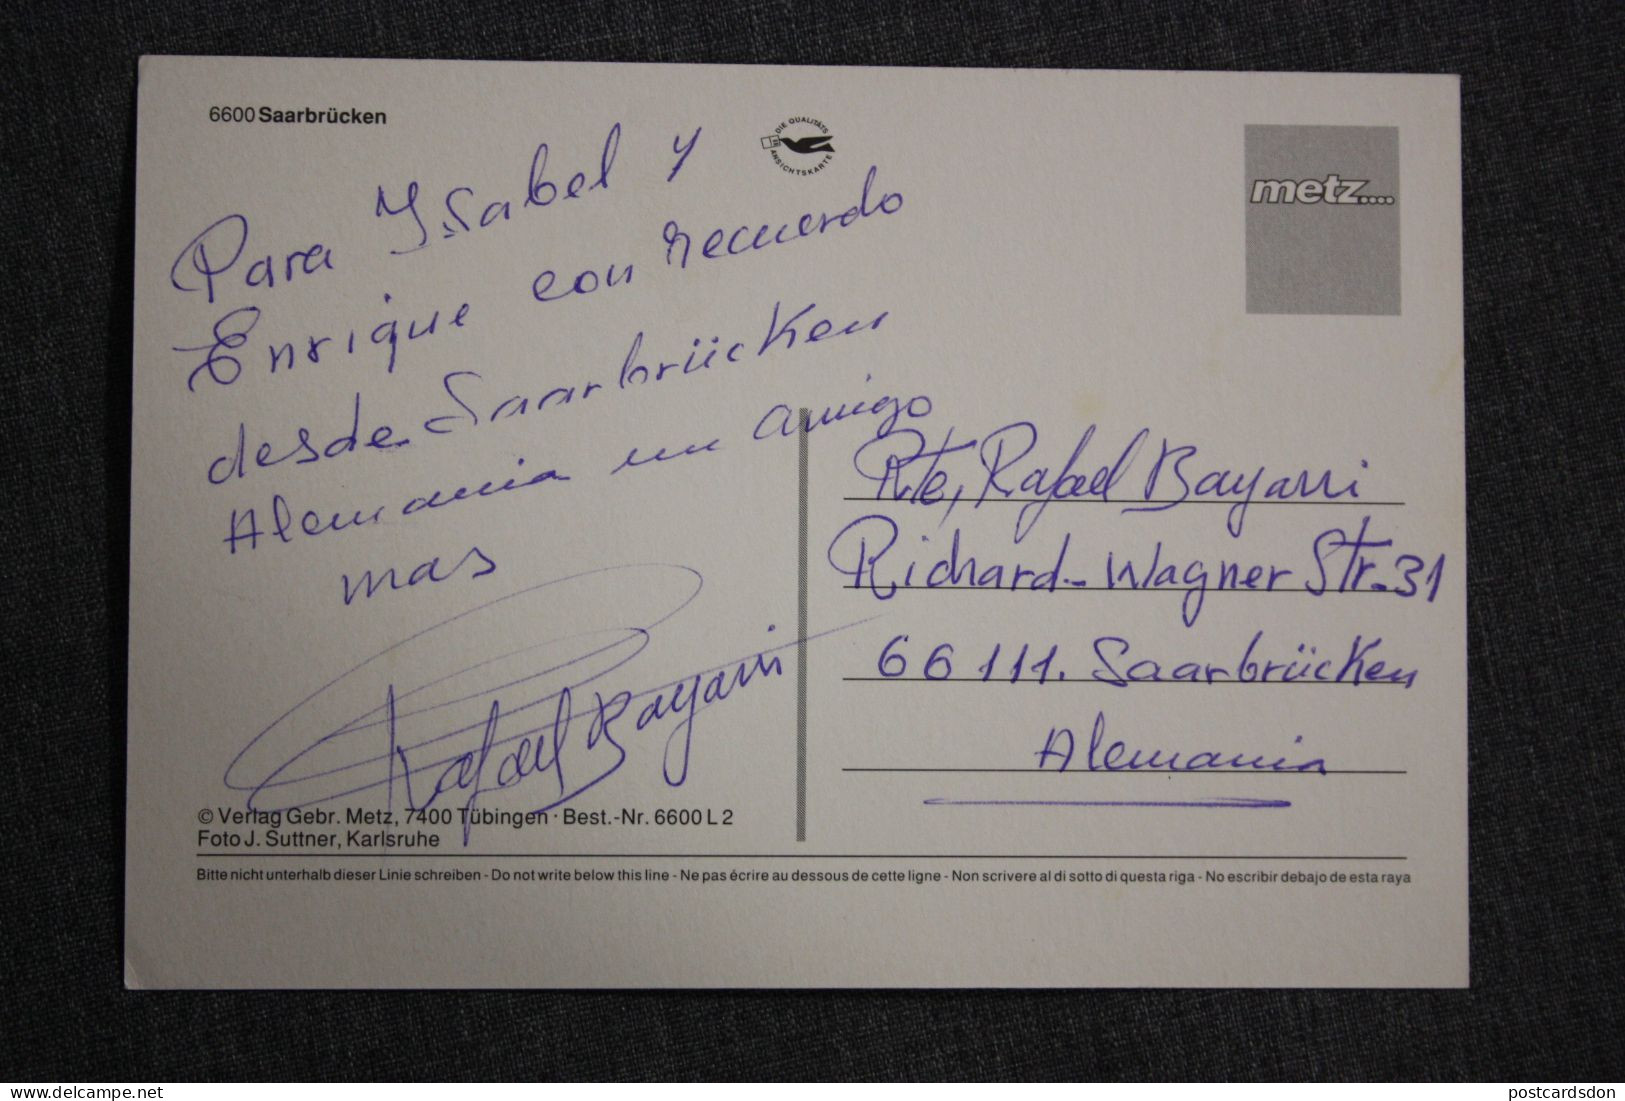 6600 Saarbrücken
DIE QUALITÄTS
ANSICHTSKARTE
metz.....
Para Ysabel y
Enrique con recuerdo
desde Saarbrücken
Alemania un amigo
mas
Rafael Bayarri
Rte, Rafael Bayarri
Richard-Wagner Str. 31
66111. Saarbrücken
Alemania
© Verlag Gebr. Metz, 7400 Tübingen · Best.-Nr. 6600 L 2
Foto J. Suttner, Karlsruhe
Bitte nicht unterhalb dieser Linie schreiben - Do not write below this line - Ne pas écrire au dessous de cette ligne - Non scrivere al di sotto di questa riga - No escribir debajo de esta raya
delcampe.net
postcardsdon